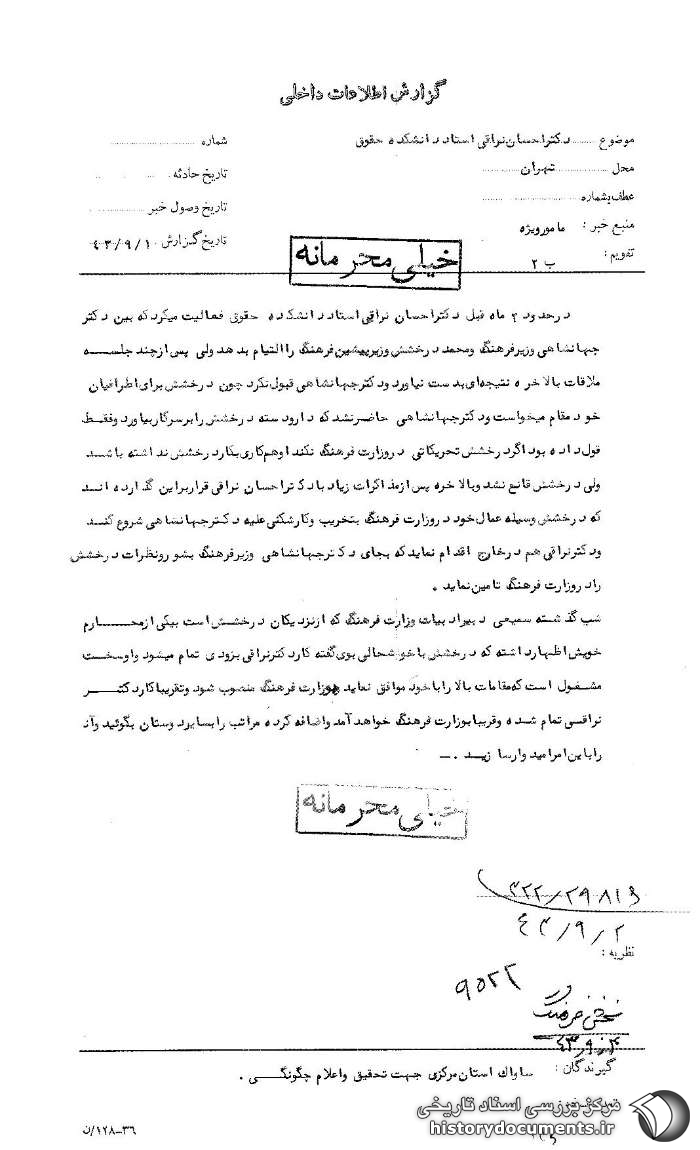 گزارش اطلاعات داخلی
موضوع ........ دکتر احسان نراقی استاد دانشکده حقوق
شماره
محل ........ تهران ........
تاریخ حادثه
عطف بشماره
تاریخ وصول خبر
منبع خبر : مامور ویژه
تاریخ گزارش ۴۳/۹/۱
تقویم : ب ۲
خیلی محرمانه
در حدود ۲ ماه قبل دکتر احسان نراقی استاد دانشکده حقوق فعالیت میکرد که بین دکتر
جهانشاهی وزیر فرهنگ و محمد درخشش وزیر پیشین فرهنگ را التیام بدهد ولی پس از چند جلسه
ملاقات بالاخره نتیجه‌ای بدست نیاورد و دکتر جهانشاهی قبول نکرد چون درخشش برای اطرافیان
خود مقام میخواست و دکتر جهانشاهی حاضر نشد که دارودسته درخشش را بر سر کار بیاورد و فقط
قول داده بود اگر درخشش تحریکاتی در وزارت فرهنگ نکند او هم کاری بکار درخشش نداشته باشد
ولی درخشش قانع نشد و بالاخره پس از مذاکرات زیاد با دکتر احسان نراقی قرار بر این گذارده اند
که درخشش وسیله عمال خود در وزارت فرهنگ بتخریب و کارشکنی علیه دکتر جهانشاهی شروع کند
و دکتر نراقی هم در خارج اقدام نماید که بجای دکتر جهانشاهی وزیر فرهنگ بشو ونظرات درخشش
را در وزارت فرهنگ تامین نماید .
شب گذشته سمیعی دبیر ادبیات وزارت فرهنگ که از نزدیکان درخشش است بیکی از محارم
خویش اظهار داشته که درخشش با خوشحالی بوی گفته کار دکتر نراقی بزودی تمام میشود و او سخت
مشغول است که مقامات بالا را با خود موافق نماید بوزارت فرهنگ منصوب شود و تقریبا کار دکتر
نراقی تمام شده و قریبا بوزارت فرهنگ خواهد آمد و اضافه کرده مراتب را بسایر دوستان بگوئید و آنان
را باین امر امیدوار سازید .ــ
خیلی محرمانه
۳۲۲/۲۹۸۱۶
۴۳/۹/۲
نظریه :
۹۵۲۲
بخش فرهنگ
۴۳/۹/۳
گیرندگان : ساواک استان مرکزی جهت تحقیق و اعلام چگونگی .
مرکز بررسی اسناد تاریخی
historydocuments.ir
۳۶-۱۲۸/ن